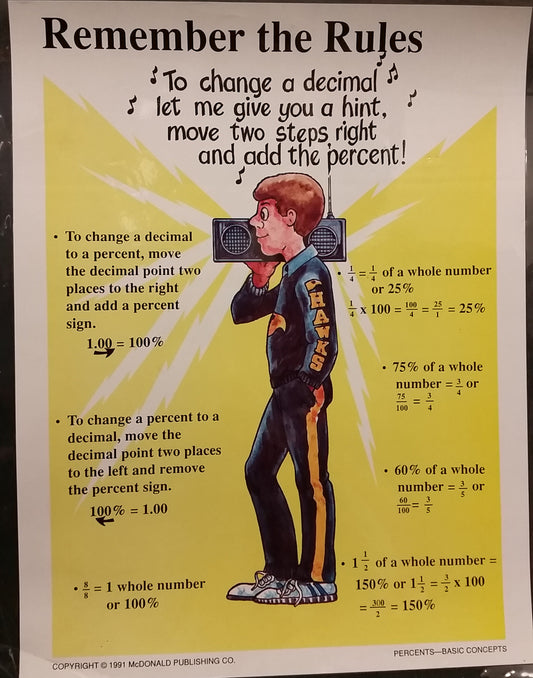 Remember the Rules
To change a decimal
let me give you a hint,
move two steps right
and add the percent!
• To change a decimal
to a percent, move
the decimal point two
places to the right
and add a percent
sign.
1.00 = 100%
• To change a percent to a
decimal, move the
decimal point two places
to the left and remove
the percent sign.
100% = 1.00
• 8/8 = 1 whole number
or 100%
HAWKS
• 1/4 = 1/4 of a whole number
or 25%
1/4 x 100 = 100/4 = 25/1 = 25%
• 75% of a whole
number = 3/4 or
75/100 = 3/4
• 60% of a whole
number = 3/5 or
60/100 = 3/5
• 1 1/2 of a whole number =
150% or 1 1/2 = 3/2 x 100
= 300/2 = 150%
COPYRIGHT © 1991 McDONALD PUBLISHING CO.
PERCENTS—BASIC CONCEPTS